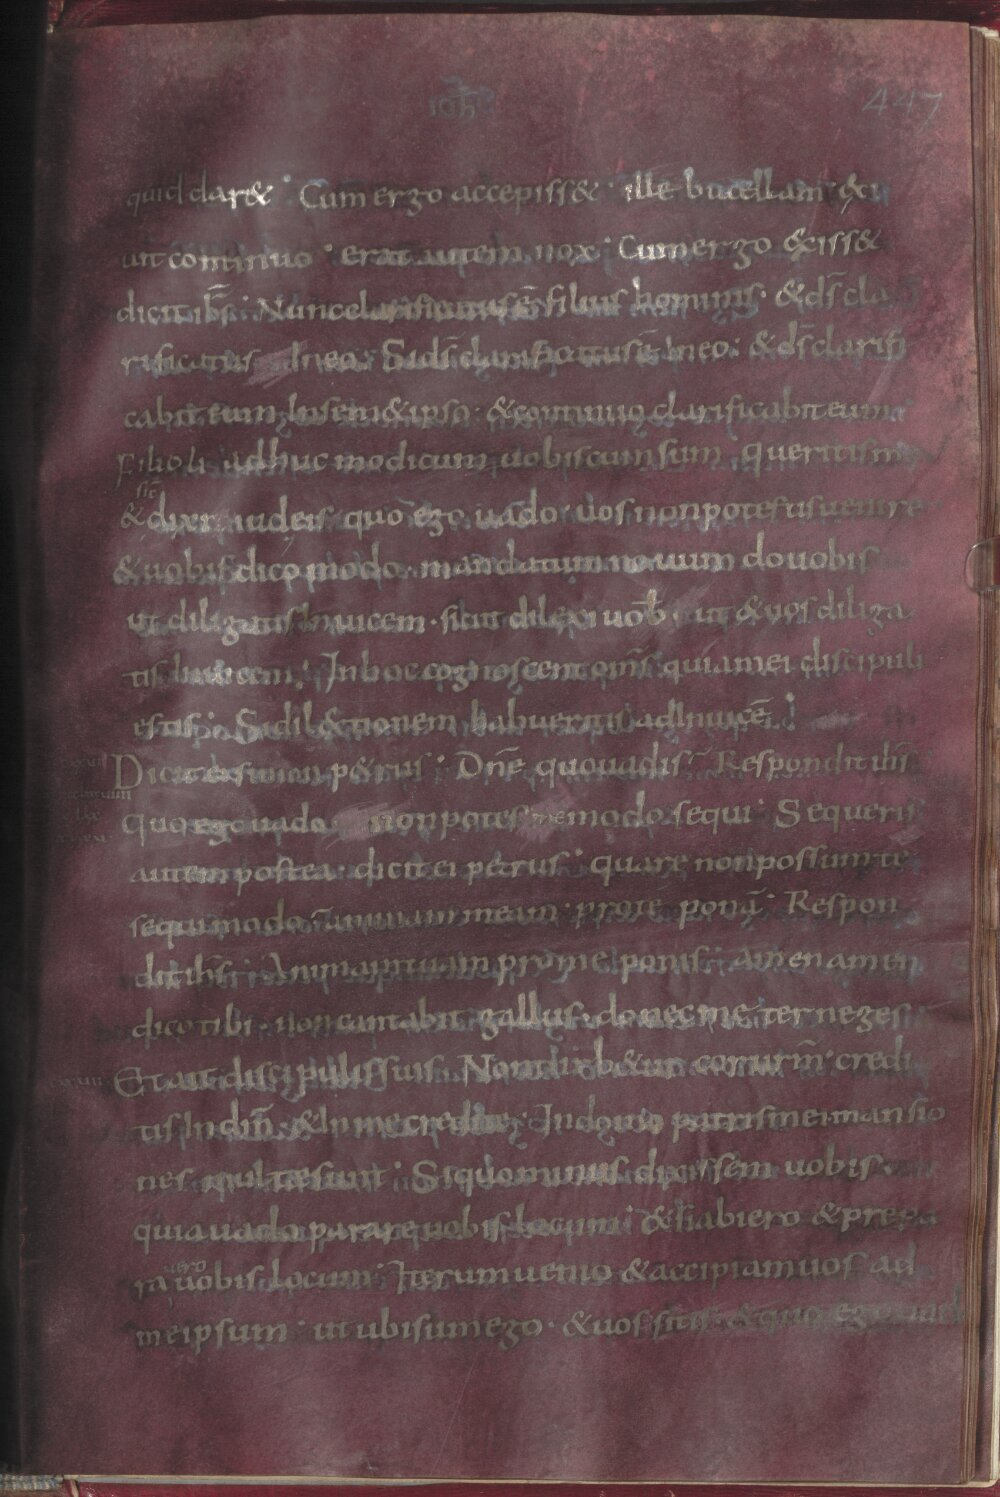 ioħ
447
quid dar& · Cum ergo accepiss& · ille bucellam exi
uit continuo · erat autem nox · Cum ergo exiss&
dicit ih̄s · Nunc clarificatus ē filius hominis · & ds̄ cla
rificatus Ineo · Si ds̄ clarificatus ē ineo · & ds̄ clarifi
cabit eum In sem&ipso · & continuo clarificabit eum ·
Filioli adhuc modicum uobiscum sum queritis me
sic̄
& dixi iudeis quo ego uado · uos non potestis uenire
& uobis dico modo · mandatum nouum do uobis
ut diligatis Inuicem · sicut dilexi uob · ut & uos diliga
tis Inuicem · In hoc cognoscent om̄s quia mei discipuli
estis · Si dil&tionem habueritis adInuicē
Dicit ei simon p&rus · Dn̄e quo uadis Respondit ih̄s
Quo ego uado non potes me modo sequi · Sequeris
autem postea · dicit ei petrus · quare non possum te
sequi modo animam meam · pro te ponā · Respon
dit ih̄s · Animam tuam pro me ponis · amen amen
dico tibi · non cantabit gallus · donec me ter neges
Et ait discipulis suis Non turb&ur cor ur̄m · credi
tis In dm̄ · & In me credite · In domo patris mei mansio
nes multae sunt · Si quo minus dixissem uobis ·
quia uado parare uobis locum · & si abiero & prepa
uero
ra uobis locum · Iterum uenio & accipiam uos ad
me ipsum · ut ubi sum ego · & uos sitis · & quo ego uad